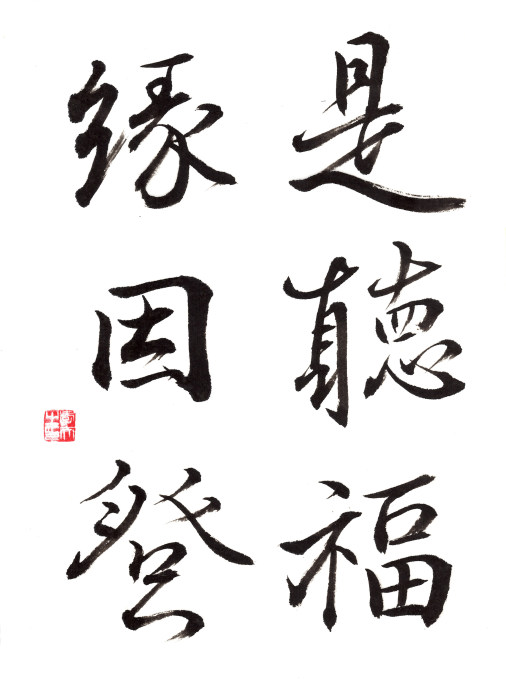 是聽福
緣因登